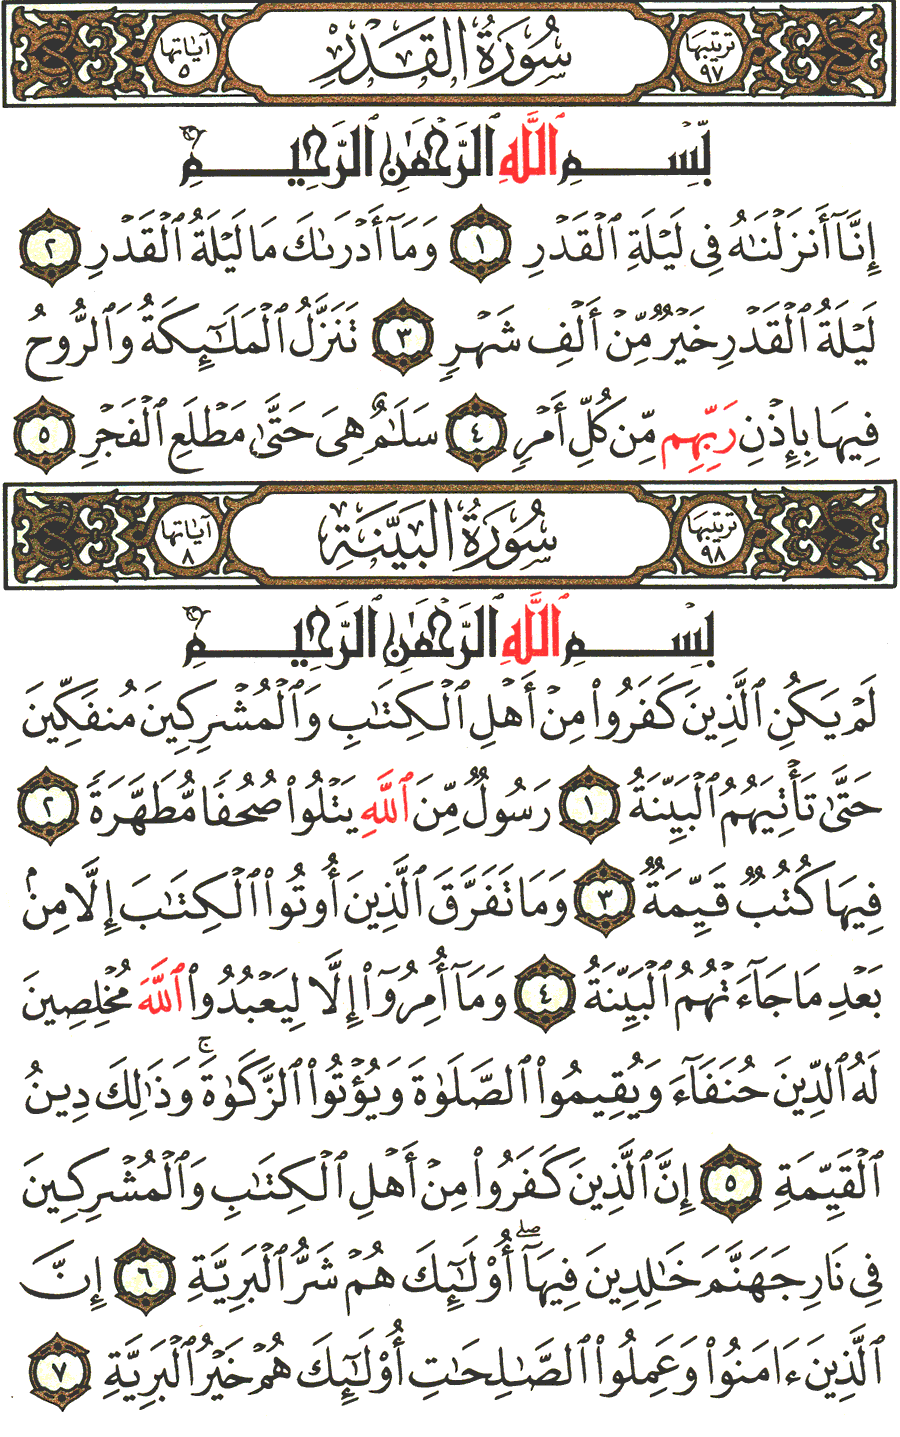 ترتيبها ٩٧ سُورَةُ القَدْرِ آياتها ٥
بِّسْمِ ٱللَّهِ ٱلرَّحْمَٰنِ ٱلرَّحِيمِ
إِنَّآ أَنزَلْنَٰهُ فِى لَيْلَةِ ٱلْقَدْرِ ١ وَمَآ أَدْرَىٰكَ مَا لَيْلَةُ ٱلْقَدْرِ ٢
لَيْلَةُ ٱلْقَدْرِ خَيْرٌ مِّنْ أَلْفِ شَهْرٍ ٣ تَنَزَّلُ ٱلْمَلَٰٓئِكَةُ وَٱلرُّوحُ
فِيهَا بِإِذْنِ رَبِّهِم مِّن كُلِّ أَمْرٍ ٤ سَلَٰمٌ هِىَ حَتَّىٰ مَطْلَعِ ٱلْفَجْرِ ٥
ترتيبها ٩٨ سُورَةُ البَيِّنَةِ آياتها ٨
بِسْمِ ٱللَّهِ ٱلرَّحْمَٰنِ ٱلرَّحِيمِ
لَمْ يَكُنِ ٱلَّذِينَ كَفَرُوا۟ مِنْ أَهْلِ ٱلْكِتَٰبِ وَٱلْمُشْرِكِينَ مُنفَكِّينَ
حَتَّىٰ تَأْتِيَهُمُ ٱلْبَيِّنَةُ ١ رَسُولٌ مِّنَ ٱللَّهِ يَتْلُوا۟ صُحُفًا مُّطَهَّرَةً ٢
فِيهَا كُتُبٌ قَيِّمَةٌ ٣ وَمَا تَفَرَّقَ ٱلَّذِينَ أُوتُوا۟ ٱلْكِتَٰبَ إِلَّا مِنۢ
بَعْدِ مَا جَآءَتْهُمُ ٱلْبَيِّنَةُ ٤ وَمَآ أُمِرُوٓا۟ إِلَّا لِيَعْبُدُوا۟ ٱللَّهَ مُخْلِصِينَ
لَهُ ٱلدِّينَ حُنَفَآءَ وَيُقِيمُوا۟ ٱلصَّلَوٰةَ وَيُؤْتُوا۟ ٱلزَّكَوٰةَ ۚ وَذَٰلِكَ دِينُ
ٱلْقَيِّمَةِ ٥ إِنَّ ٱلَّذِينَ كَفَرُوا۟ مِنْ أَهْلِ ٱلْكِتَٰبِ وَٱلْمُشْرِكِينَ
فِى نَارِ جَهَنَّمَ خَٰلِدِينَ فِيهَآ ۖ أُو۟لَٰٓئِكَ هُمْ شَرُّ ٱلْبَرِيَّةِ ٦ إِنَّ
ٱلَّذِينَ ءَامَنُوا۟ وَعَمِلُوا۟ ٱلصَّٰلِحَٰتِ أُو۟لَٰٓئِكَ هُمْ خَيْرُ ٱلْبَرِيَّةِ ٧